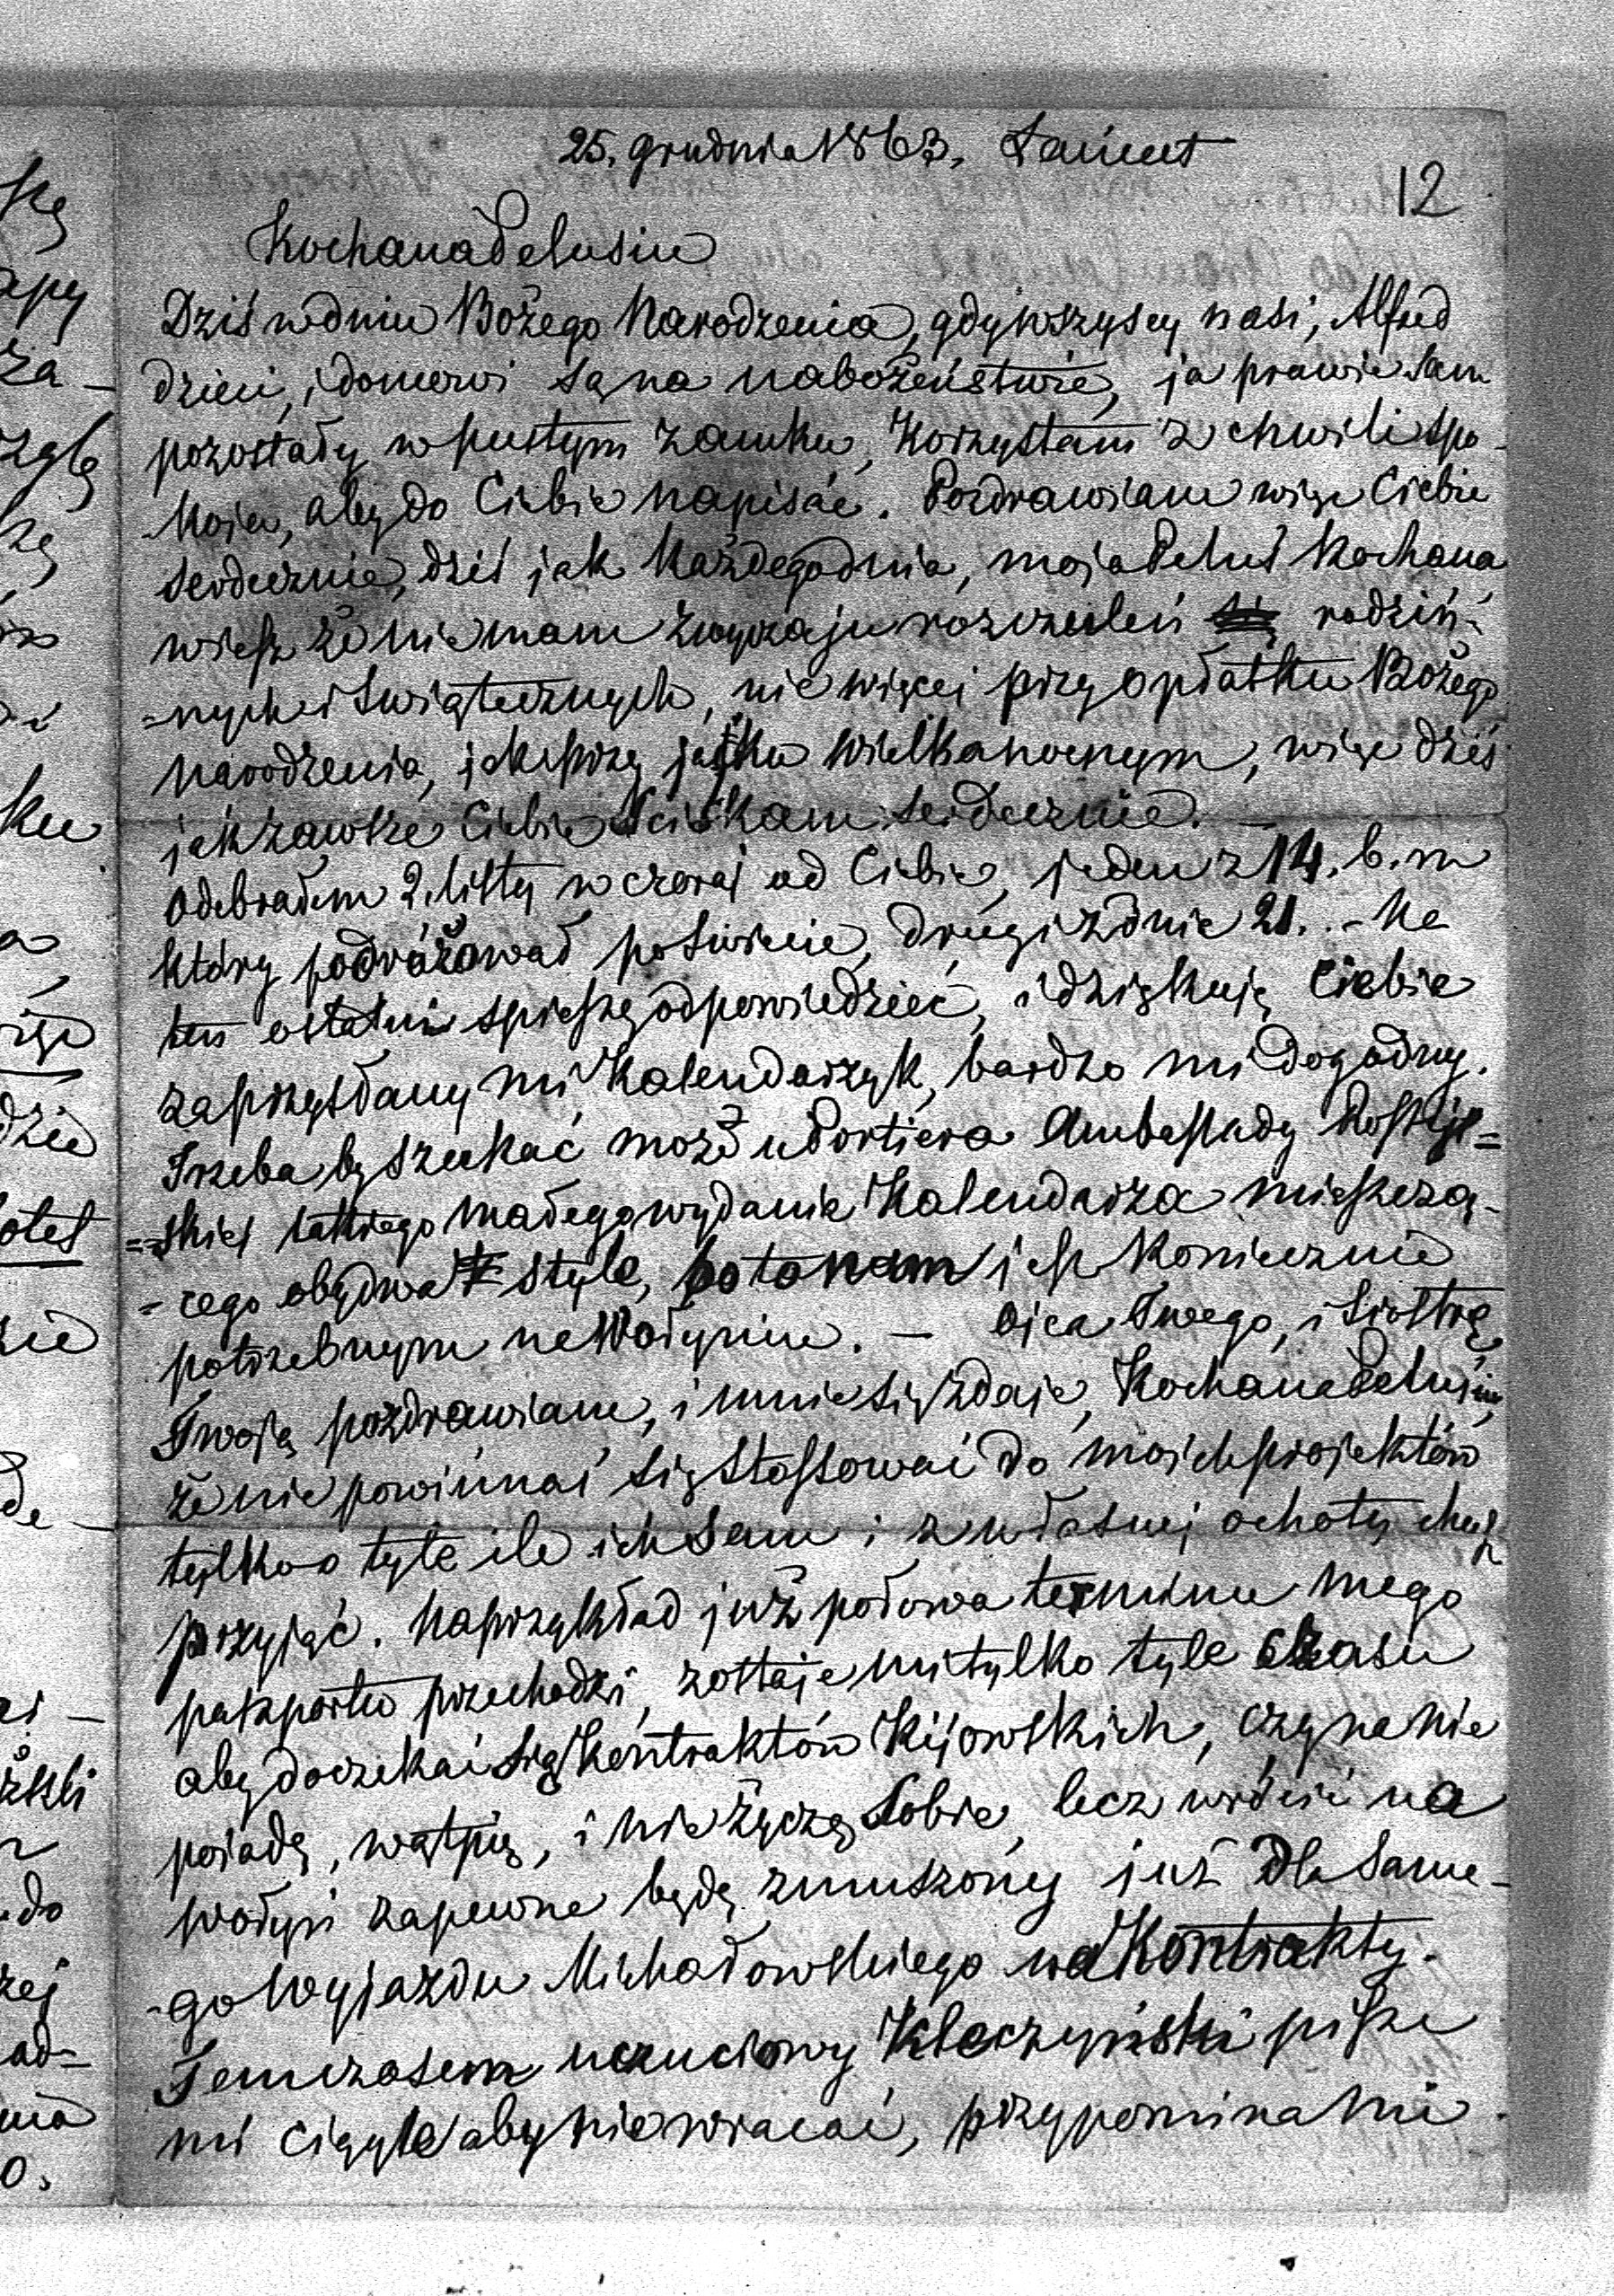 25. grudnia 1863, Łańcut
12
Kochana Pelusiu
Dziś w dniu Bożego Narodzenia, gdy wszyscy nasi, Alfred
dzieci, i domowi są na nabożeństwie, ja prawie sam
pozostały w pustym zamku, korzystam z chwili spo-
koju, aby do Ciebie napisać. Pozdrawiam więc Ciebie
serdecznie, dziś jak każdego dnia, moja Peluś kochana
wiesz że nie mam zwyczaju rozczuleń rodzin-
-nych i świątecznych, nie więcej przy opłatku Bożego
Narodzenia, jak przy jajku wielkanocnym, więc dziś
jak zawsze Ciebie ściskam serdecznie. —
Odebrałem 2. listy wczoraj od Ciebie, jeden z 14. b.m
który podróżował po świecie, drugi z dnia 21. - Na
ten ostatni spieszę odpowiedzieć, i dziękuję Ciebie
za przysłany mi Kalendarzyk, bardzo mi dogodny.
Trzeba by szukać może u Portiera Ambassady Rossyj=
=skiej takiego małego wydania Kalendarza mieszczą-
-cego obydwa style, bo to nam jest koniecznie
potrzebnym na Wołyniu. — Ojca Twego, i Siostrę
Twoją pozdrawiam, i mnie się zdaje, Kochana Pelusiu,
że nie powinnaś się stossować do moich projektów
tylko o tyle ile ich sam i z własnej ochoty chcesz
przyjąć. Naprzykład już połowa terminu mego
paszportu przechodzi, zostaje mi tylko tyle czasu
aby doczekać się Kontraktów Kijowskich, czy na nie
pojadę, wątpię, i nie życzę sobie, lecz wrócić na
Wołyń zapewne będę zmuszony już dla same-
-go wyjazdu Michałowskiego na Kontrakty.
Temczasem uczuciowy Kleczyński pisze
mi ciągle aby nie wracać, przypomina mi